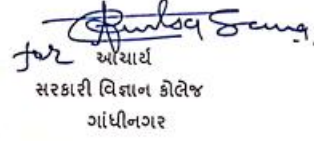 for આચાર્ય
સરકારી વિજ્ઞાન કોલેજ
ગાંધીનગર